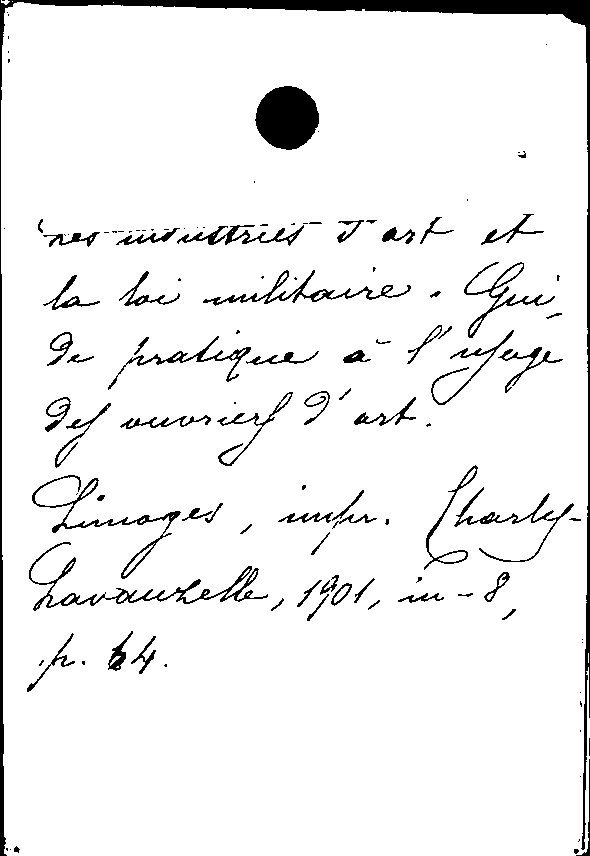 Les industries d'art et
la loi militaire. Gui-
de pratique à l'usage
des ouvriers d'art.
Limoges, impr. Charles-
Lavauzelle, 1901, in-8,
p. 64.